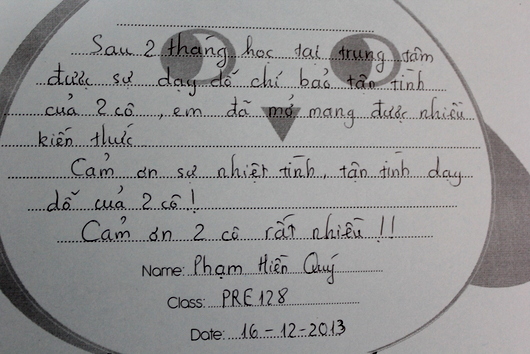 Sau 2 tháng học tại trung tâm
được sự dạy dỗ chỉ bảo tận tình
của 2 cô, em đã mở mang được nhiều
kiến thức
Cảm ơn sự nhiệt tình, tận tình dạy
dỗ của 2 cô!
Cảm ơn 2 cô rất nhiều!!
Name: Phạm Hiền Quý
Class: PRE128
Date: 16-12-2013